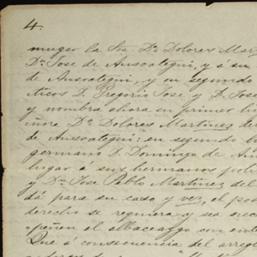 4.
muger la Sra. Da. Dolores Mar
Dn. Jose de Ansoategui, y á su
de Ansoategui, y en segundo
ticos D. Gregorio Jose y D. Jose
y nombra ahora en primer lu
Da. Dolores Martinez de
de Ansoategui: en segundo lu
germano D. Domingo de An
lugar á sus hermanos poli
y Dn. Jose Pablo Martinez del
dá para en caso y vez, el pod
derecho se requiera y sea nece
el albaceazgo con ente
Que á consecuencia del arregl